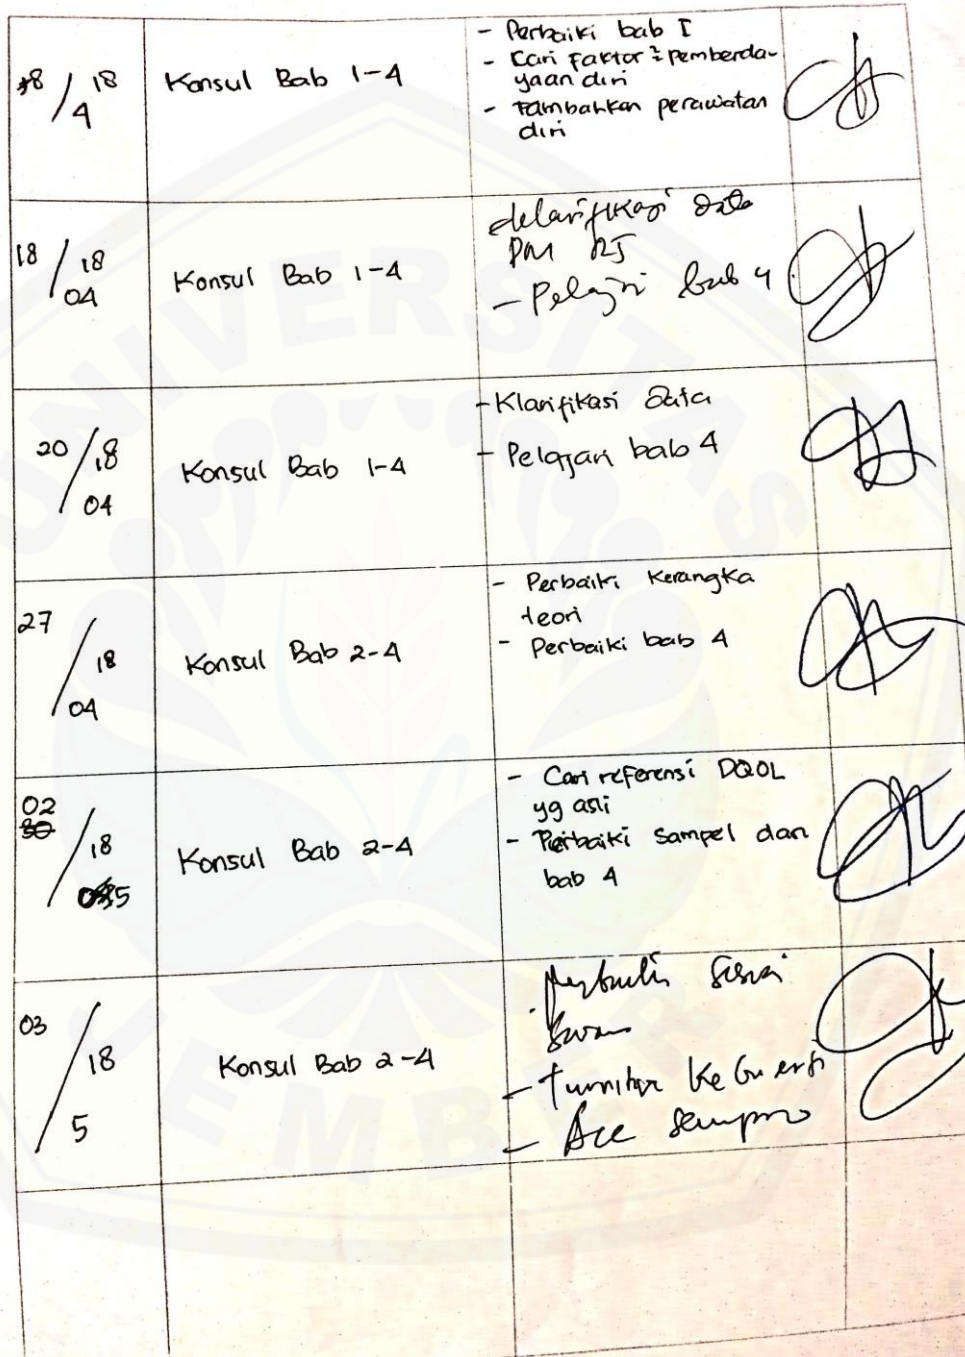 18/4 18
Konsul Bab 1-4
- Perbaiki bab I
- Cari Faktor² pemberda-
yaan diri
- Tambahkan perawatan
diri
18/04 18
Konsul Bab 1-4
data
DM RS
- Pelajari bab 4
20/04 18
Konsul Bab 1-4
- Klarifikasi Data
- Pelajari bab 4
27/04 18
Konsul Bab 2-4
- Perbaiki Kerangka
teori
- Perbaiki bab 4
02/5 18
Konsul Bab 2-4
- Cari referensi DQOL
yg asli
- Perbaiki sampel dan
bab 4
03/5 18
Konsul Bab 2-4
Sesuai
saran
-
- Acc sempro
UNIVERSITAS
JEMBER